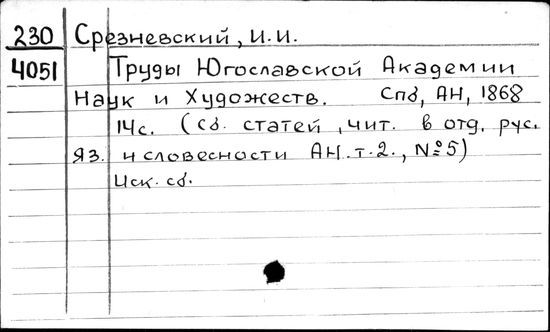 230 Срезневский, И.И.
4051 Труды Югославской Академии
Наук и Художеств. Спб, АН, 1868
14с. (Сб. статей, чит. в отд. рус.
яз. и словесности АН. т.2., №5)
Иск. сб.